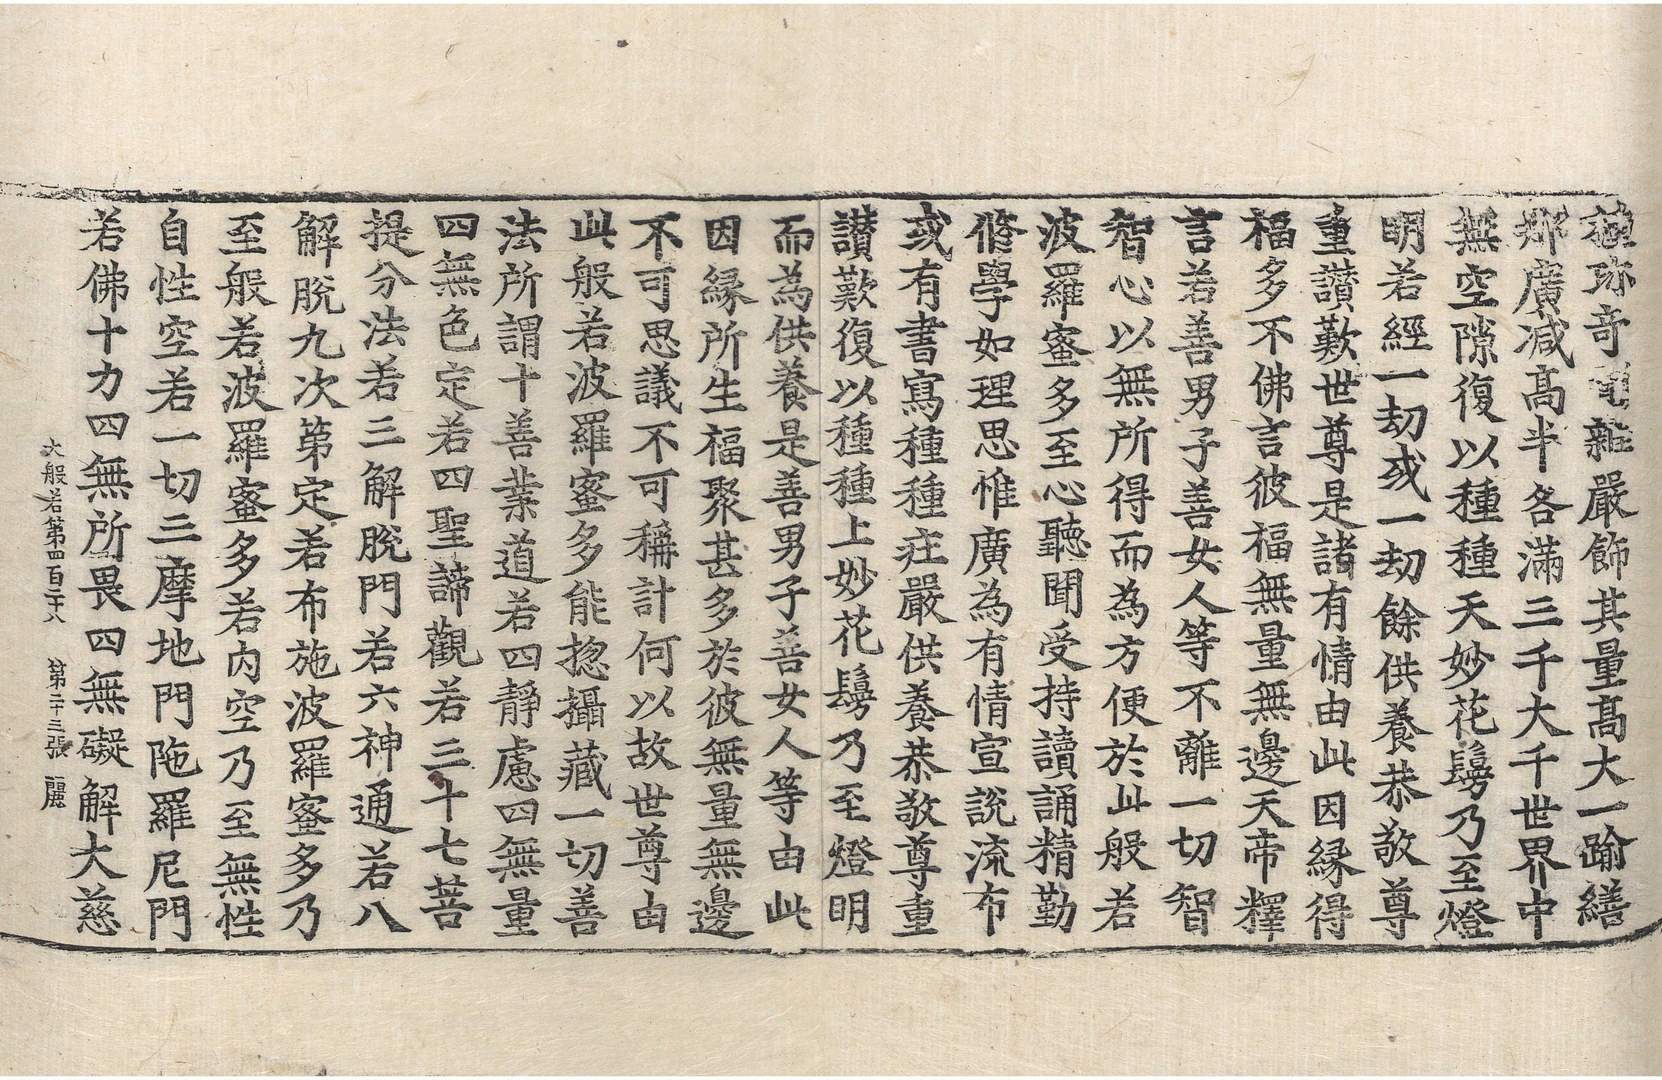 種珎奇間雜嚴飾其量髙大一踰繕
那廣減髙半各滿三千大千世界中
無空隙復以種種天妙花鬘乃至燈
明若經一劫或一劫餘供養恭敬尊
重讃歎世尊是諸有情由此因縁得
福多不佛言彼福無量無邊天帝釋
言若善男子善女人等不離一切智
智心以無所得而為方便於此般若
波羅蜜多至心聽聞受持讀誦精勤
修學如理思惟廣為有情宣說流布
或有書寫種種莊嚴供養恭敬尊重
讃歎復以種種上妙花鬘乃至燈明
而為供養是善男子善女人等由此
因縁所生福聚甚多於彼無量無邊
不可思議不可稱計何以故世尊由
此般若波羅蜜多能揔攝藏一切善
法所謂十善業道若四靜慮四無量
四無色定若四聖諦觀若三十七菩
提分法若三解脫門若六神通若八
解脫九次第定若布施波羅蜜多乃
至般若波羅蜜多若内空乃至無性
自性空若一切三摩地門陁羅尼門
若佛十力四無所畏四無礙解大慈
大般若第四百二十八 第二十三張 麗